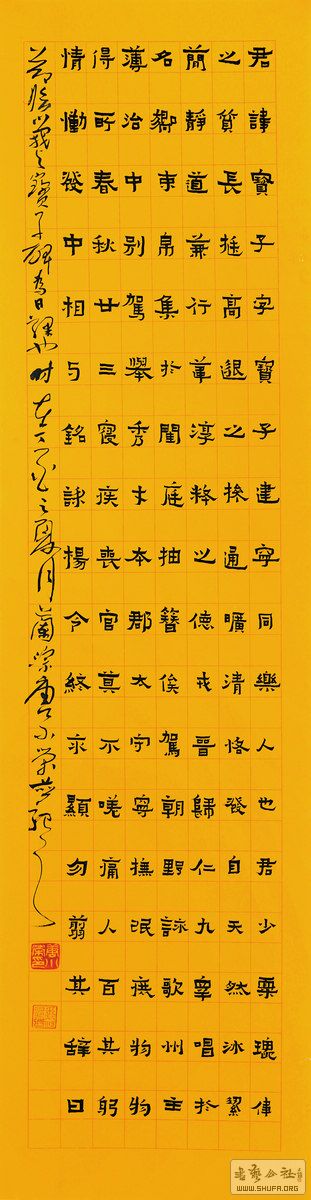 君諱寶子字寶子建寧同樂人也君少稟瑰偉
之質長挺高邈之操通曠清恪發自天然冰絜
簡靜道兼行葦淳粹之德戎晉歸仁九皋唱於
名鄉束帛集於閨庭抽簪俟駕朝野詠歌州主
薄治中別駕舉秀才本郡太守寧撫氓庶物物
得所春秋廿三寢疾喪官莫不嗟痛人百其躬
情慟發中相与銘誄揚令終永顯勿翦其辭曰
節臨爨寶子碑為日課也時在之夏月蘭
WWW.SHUFA.ORG